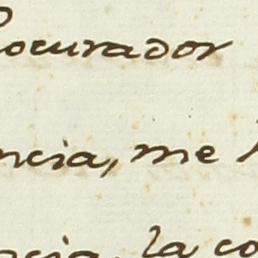 rocurador
ncia, me
ncia, la co